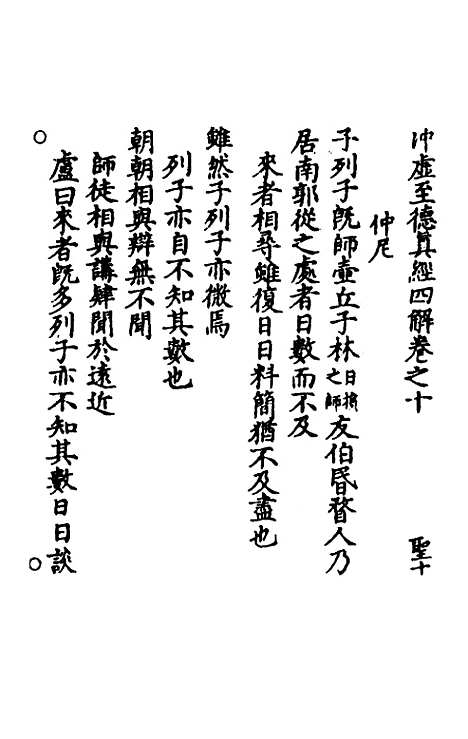 冲虛至德真經四解卷之十 聖十
仲尼
子列子既師壺丘子林日損之師友伯昏瞀人乃
居南郭從之處者日數而不及
來者相尋雖復日日料簡猶不及盡也
雖然子列子亦微焉
列子亦自不知其數也
朝朝相與辯無不聞
師徒相與講肄聞於遠近
盧曰來者既多列子亦不知其數日日談